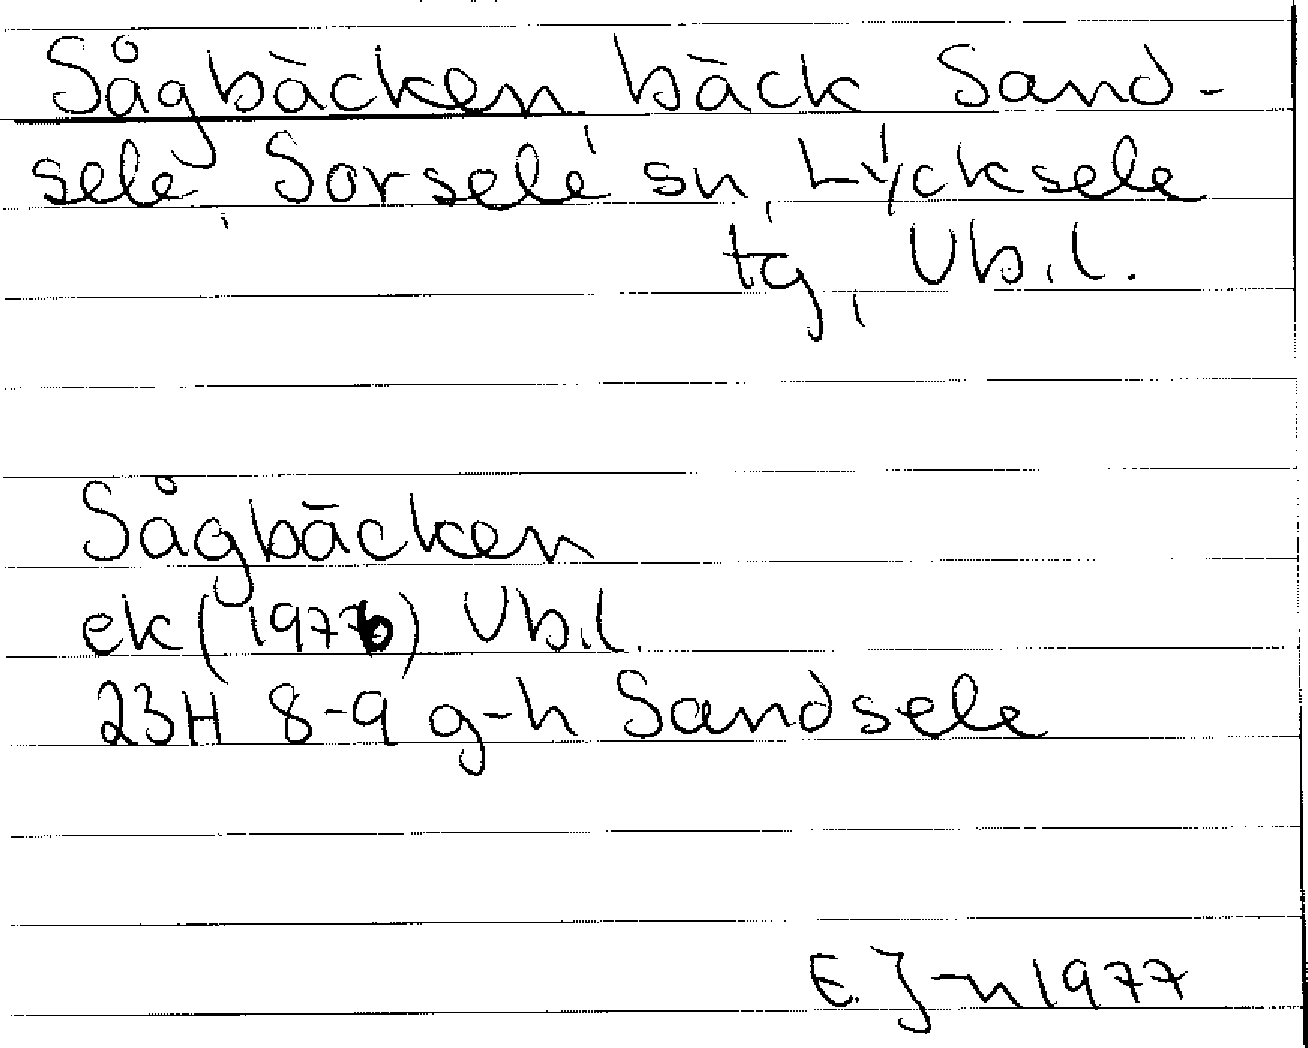 Sågbäcken bäck Sand-
sele, Sorsele sn, Lycksele
tg, Vb.l.
Sågbäcken
ek (1976) Vb.l.
23H 8-9 g-h Sandsele
E. J-n 1977